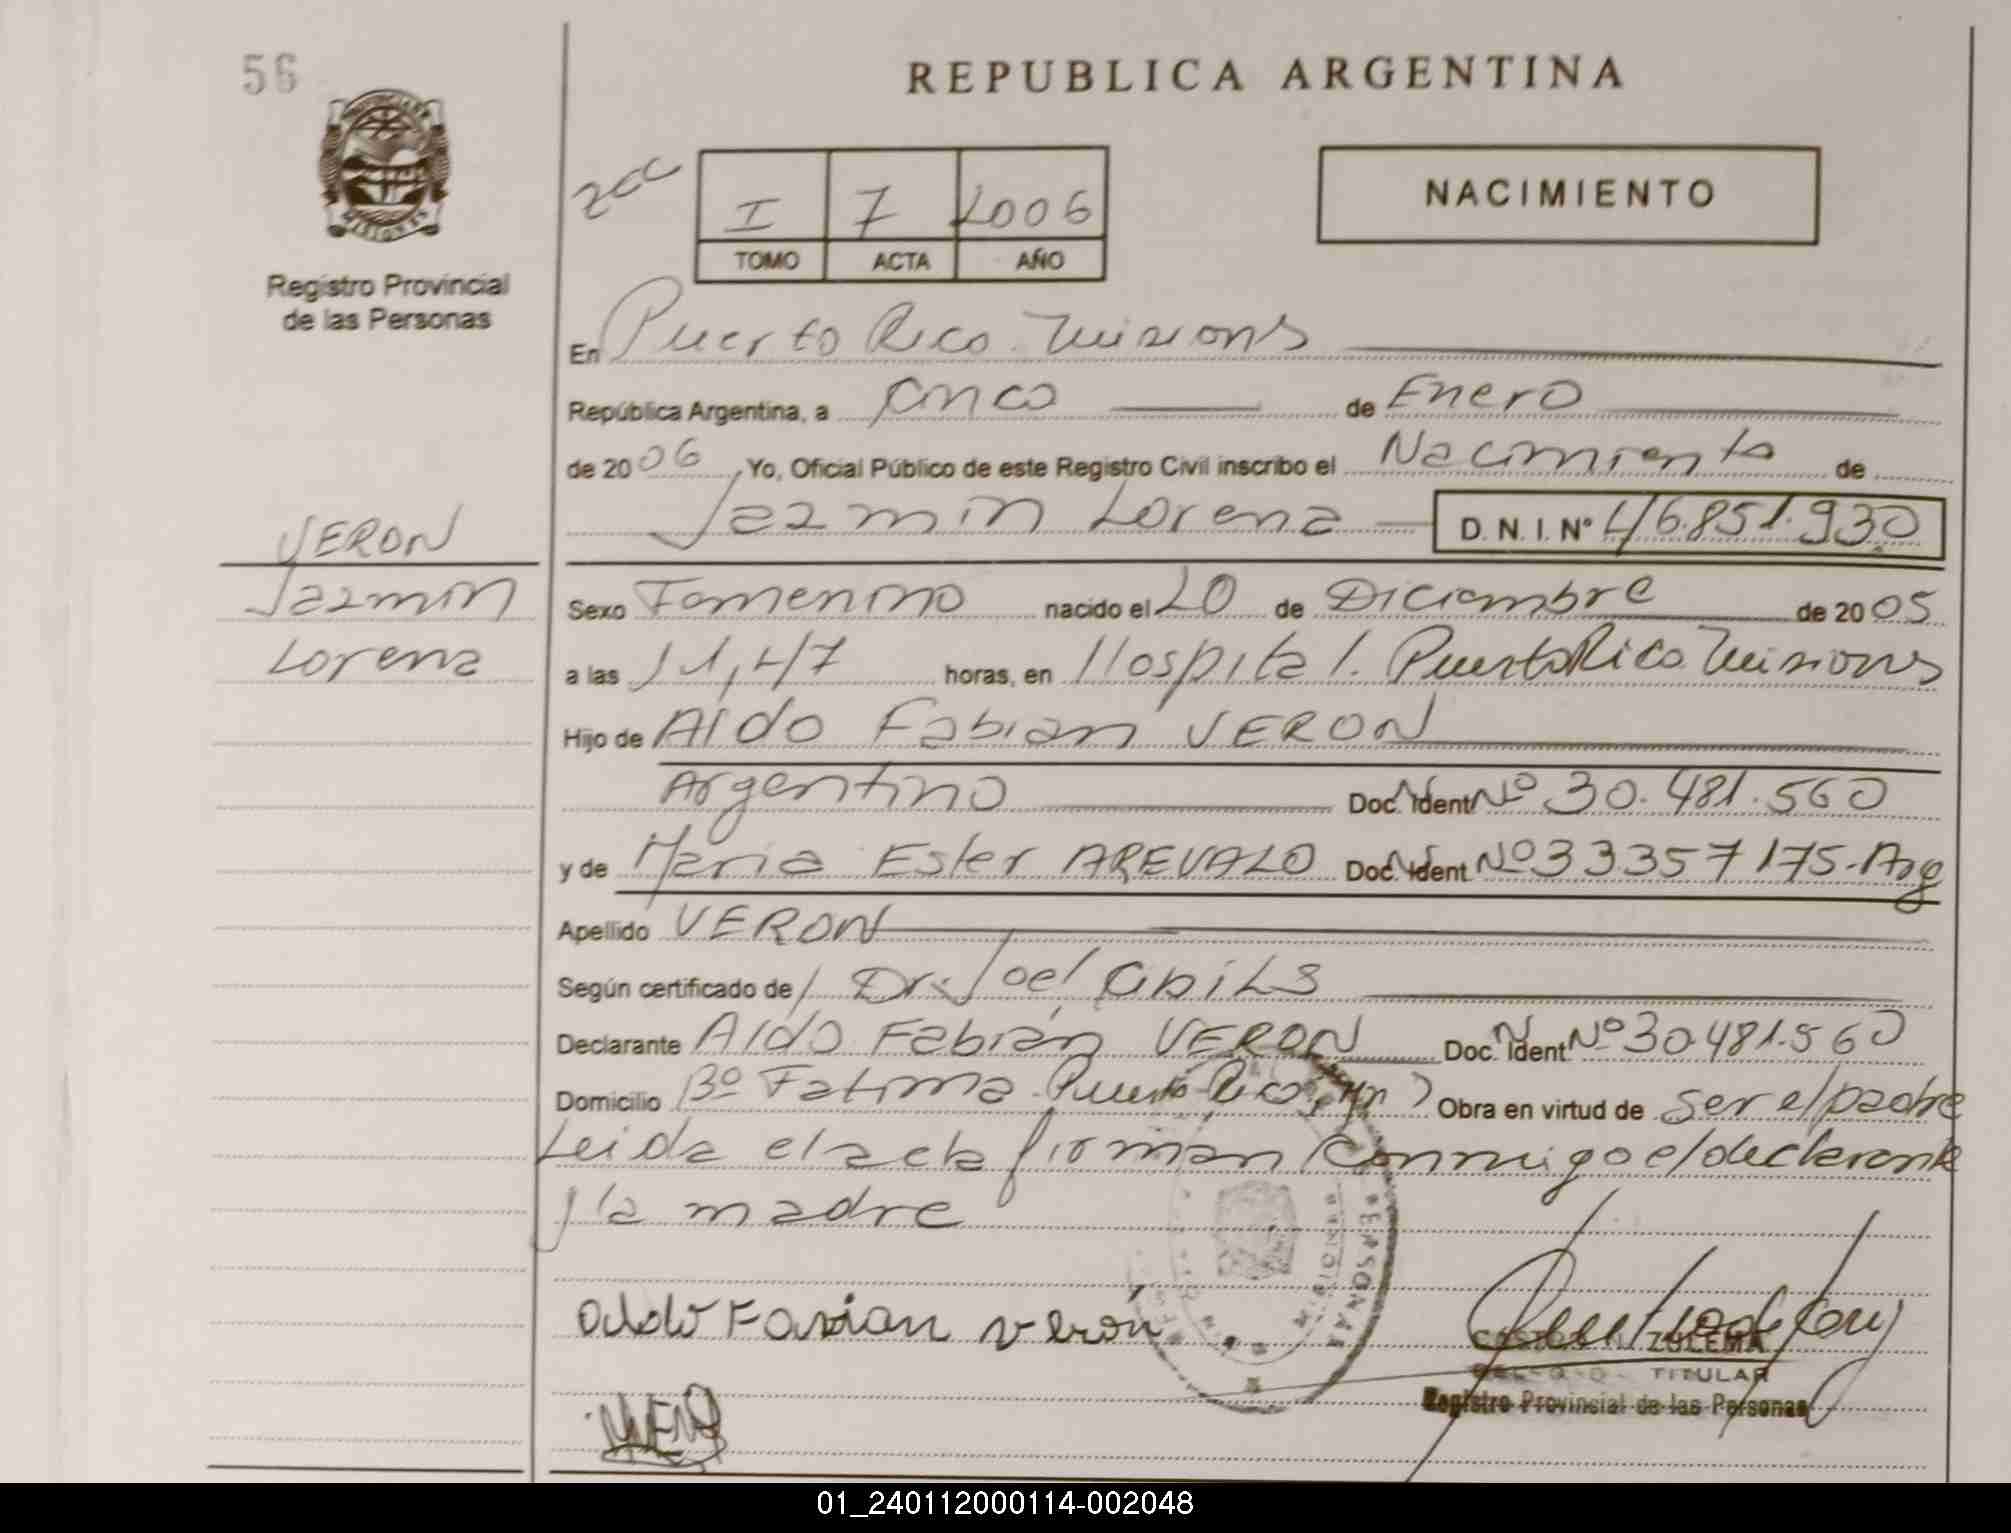 56
REPUBLICA ARGENTINA
NACIMIENTO
I 7 2006
TOMO ACTA AÑO
Registro Provincial
de las Personas
En Puerto Rico. Misiones
República Argentina, a Cinco de Enero
de 2006, Yo, Oficial Público de este Registro Civil inscribo el Nacimiento de
Jazmin Lorena D. N. I. Nº 46.851.930
VERON
Jazmin
Lorena
Sexo Femenino nacido el 20 de Diciembre de 2005
a las 11,47 horas, en Hospital. Puerto Rico Misiones
Hijo de Aldo Fabian VERON
Argentino Doc. Ident Nº 30.481.560
y de Maria Ester AREVALO Doc. Ident Nº 33357175-Arg
Apellido VERON
Según certificado de Dr. Joel
Declarante Aldo Fabián VERON Doc. Ident Nº 30.481.560
Domicilio Bº Fatima Puerto Rico Obra en virtud de ser el padre
Leida el acta firman conmigo el declarante
y la madre
Aldo Fabian verón
ZULEMA
TITULAR
Registro Provincial de las Personas
01_240112000114-002048